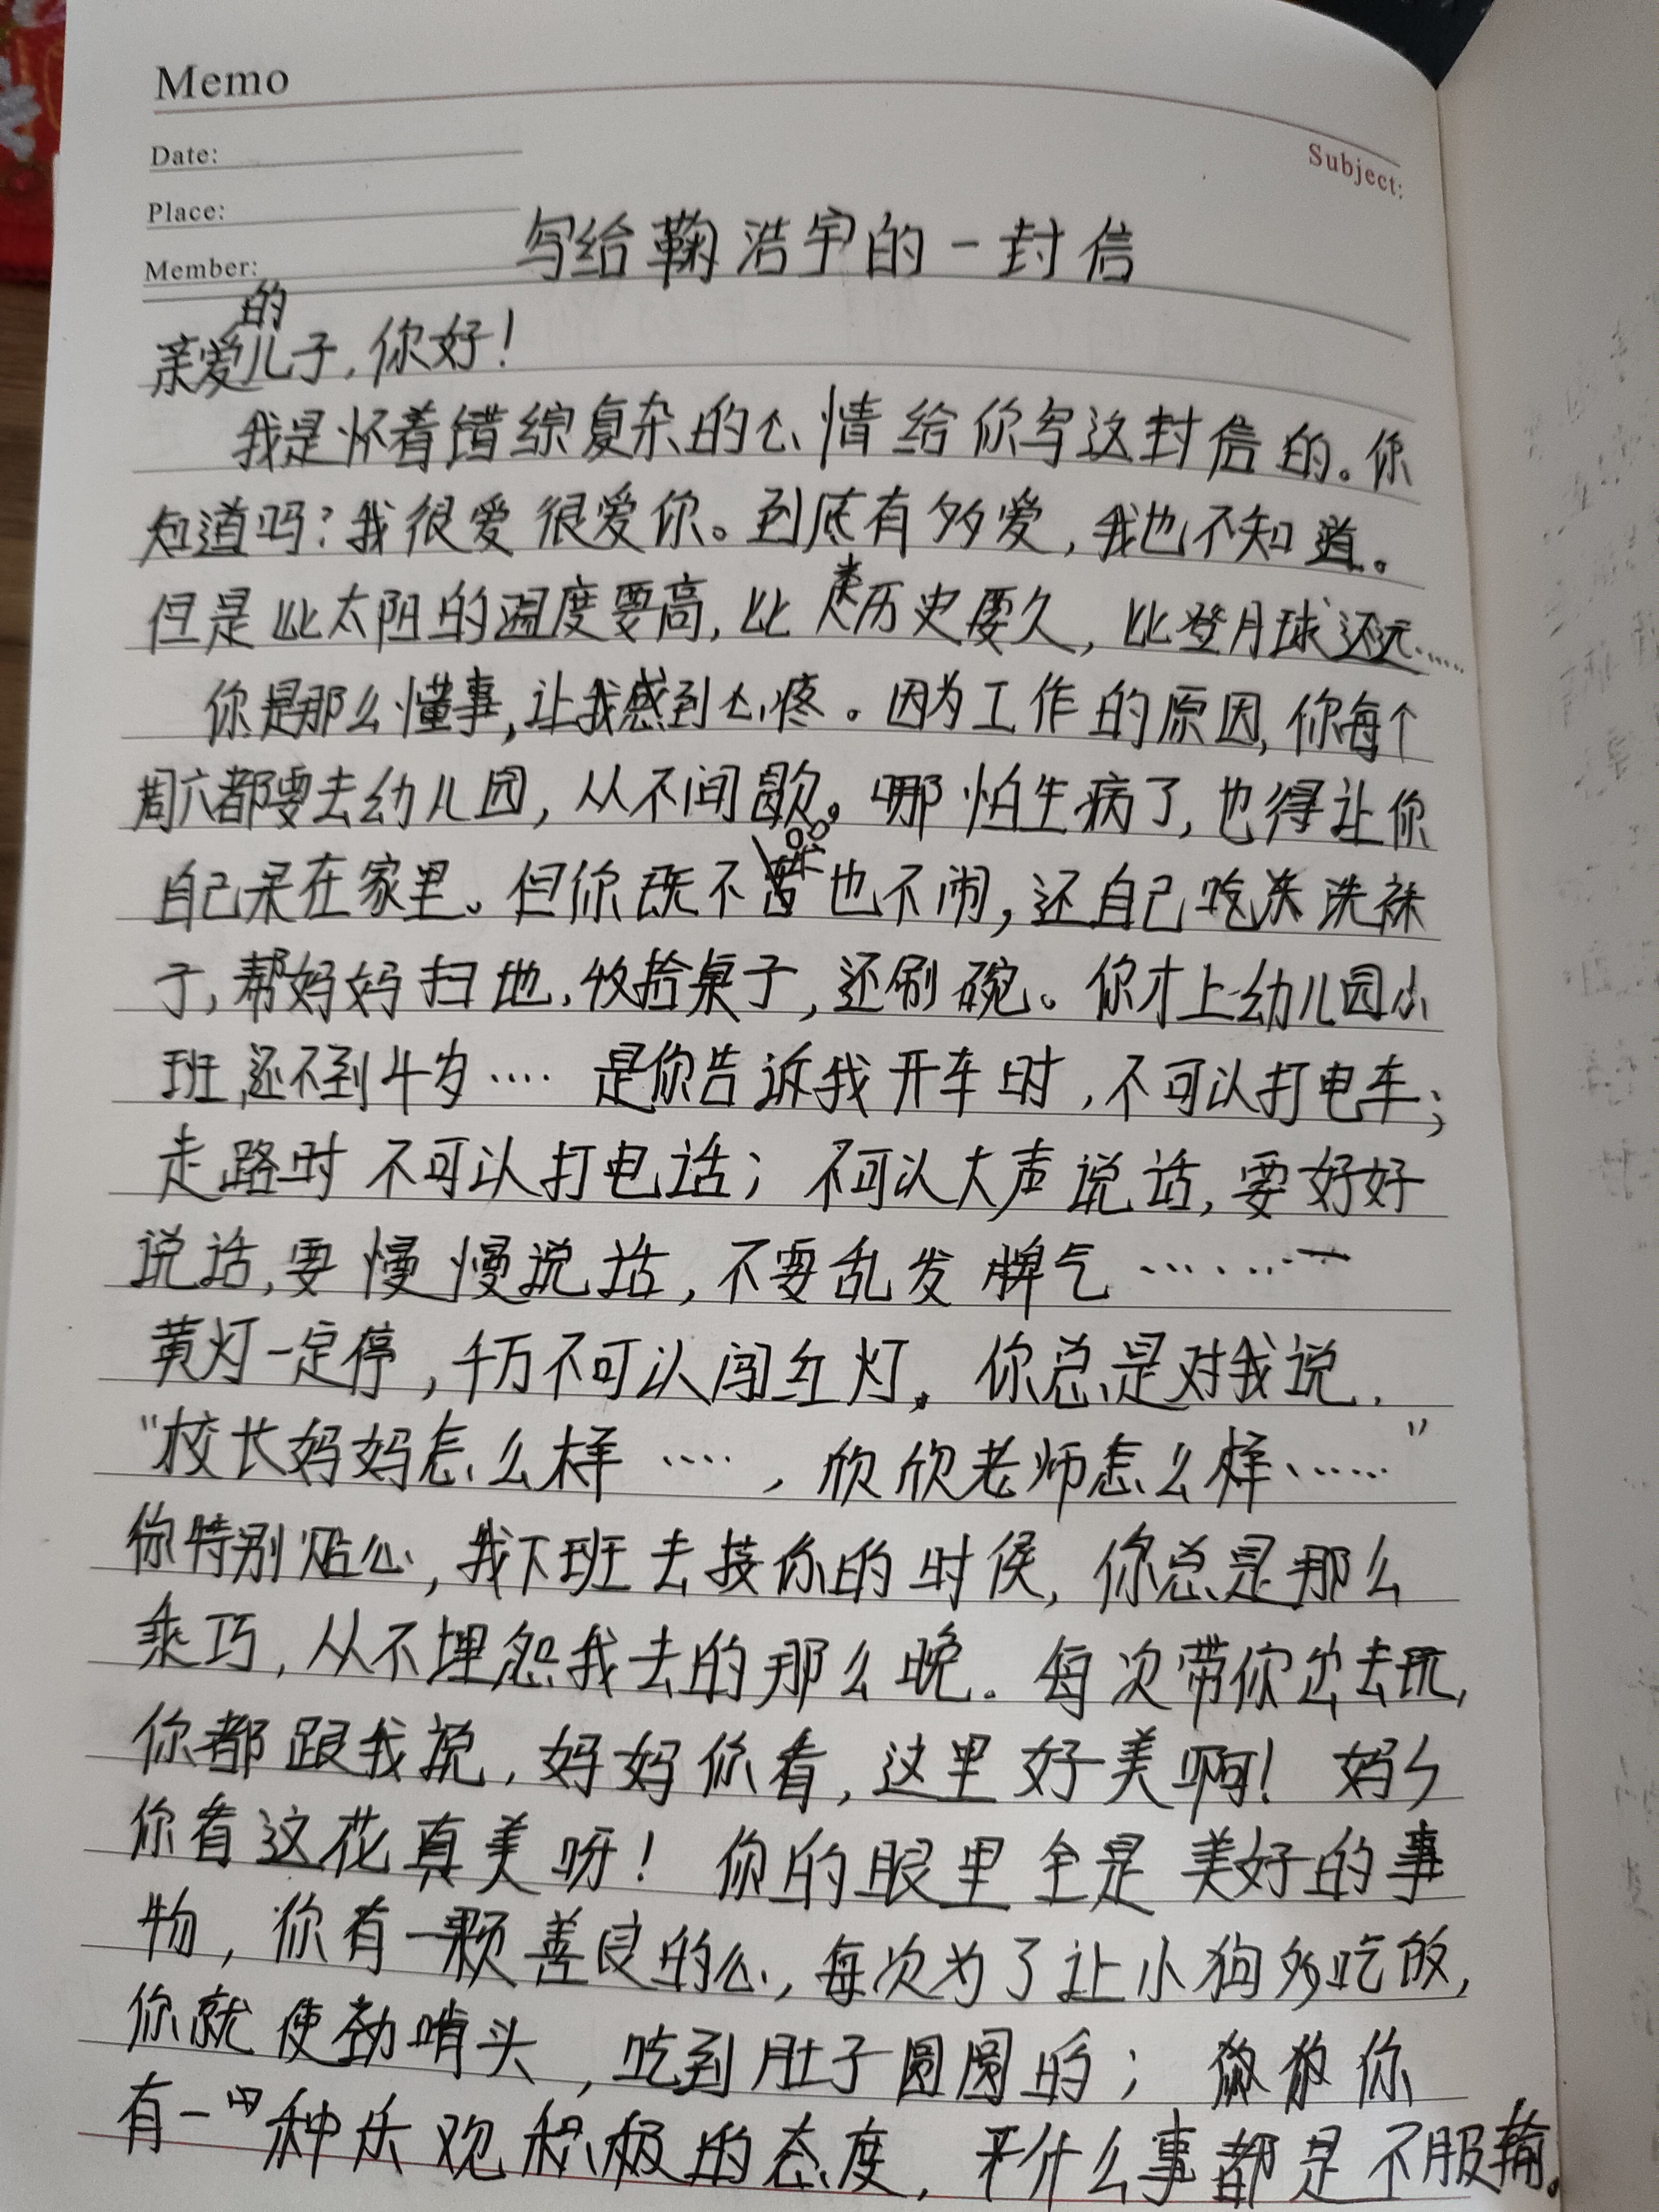 Memo
Date:
Subject:
Place:
写给鞠浩宇的一封信
Member:
亲爱的儿子,你好!
我是怀着错综复杂的心情给你写这封信的。你
知道吗?我很爱很爱你。到底有多爱,我也不知道。
但是比太阳的温度要高,比人类历史要久,比登月球还远……
你是那么懂事,让我感到心疼。因为工作的原因,你每个
周六都要去幼儿园,从不间歇。哪怕生病了,也得让你
自己呆在家里。但你既不哭也不闹,还自己吃冻洗袜
子,帮妈妈扫地,收拾桌子,还刷碗。你才上幼儿园小
班,还不到4岁…… 是你告诉我开车时,不可以打电车;
走路时不可以打电话;不可以大声说话,要好好
说话,要慢慢说话,不要乱发脾气………
黄灯一定停,千万不可以闯红灯。你总是对我说,
“校长妈妈怎么样……,欣欣老师怎么样……”
你特别贴心,我下班去接你的时侯,你总是那么
乖巧,从不埋怨我去的那么晚。每次带你出去玩,
你都跟我说,妈妈你看,这里好美啊!妈々
你看这花真美呀!你的眼里全是美好的事
物,你有一颗善良的心,每次为了让小狗多吃饭,
你就使劲啃头,吃到肚子圆圆的;你
有一种乐观积极的态度,干什么事都是不服输。